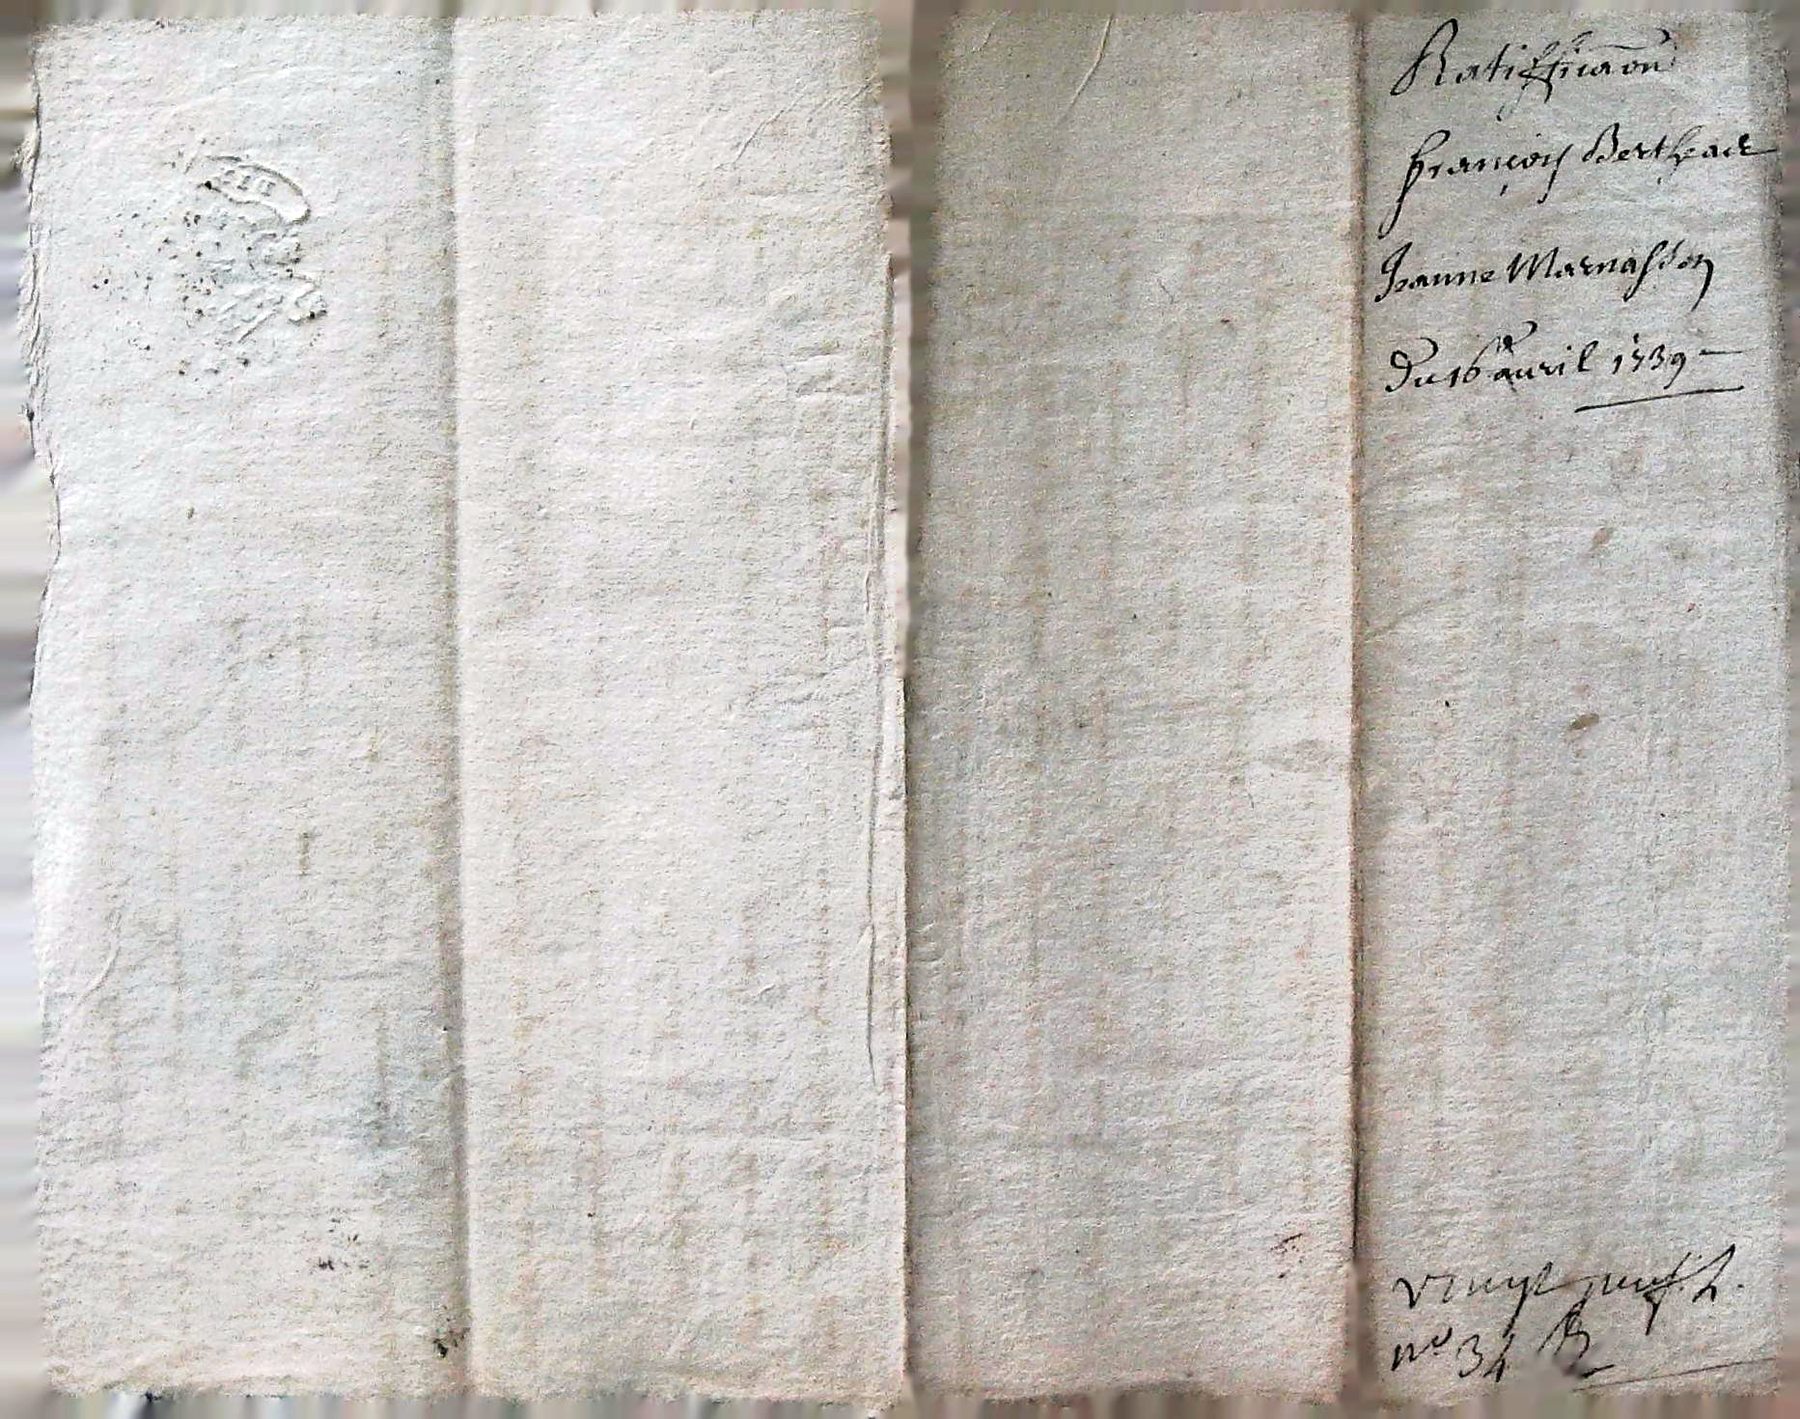 Ratiffication
françois Berthead
Jeanne Marnasson
Du 16e auril 1739
vingt neuf.
no 34 B